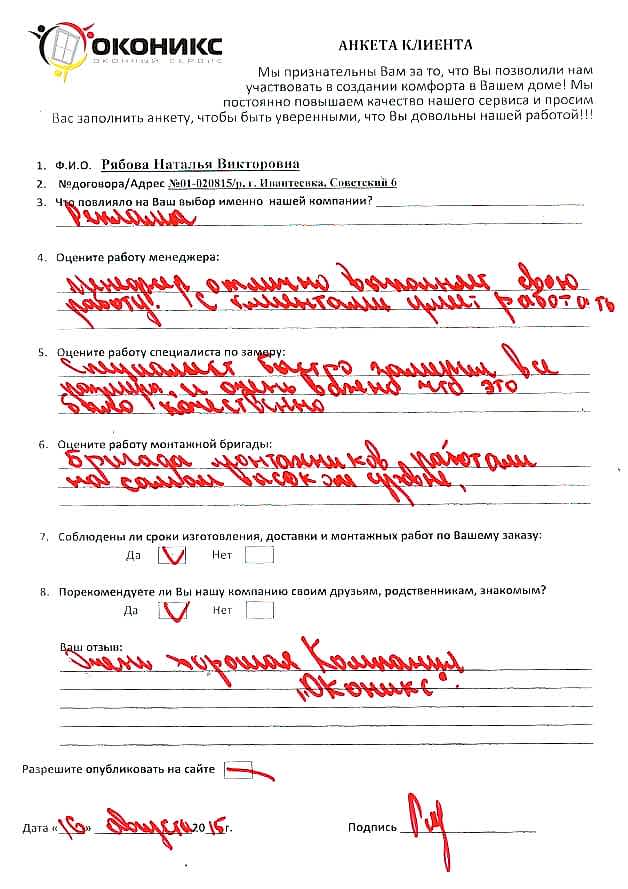 ОКОНИКС
ОКОННЫЙ СЕРВИС
АНКЕТА КЛИЕНТА
Мы признательны Вам за то, что Вы позволили нам
участвовать в создании комфорта в Вашем доме! Мы
постоянно повышаем качество нашего сервиса и просим
Вас заполнить анкету, чтобы быть уверенными, что Вы довольны нашей работой!!!
1. Ф.И.О. Рябова Наталья Викторовна
2. №договора/Адрес №01-020815/р. г. Ивантеевка, Советский 6
3. Что повлияло на Ваш выбор именно нашей компании?
Реклама
4. Оцените работу менеджера:
Менеджер отлично выполняет свою
работу! С клиентами умеет работать
5. Оцените работу специалиста по замеру:
Специалист быстро замерил все
размеры и очень что это
было качественно
6. Оцените работу монтажной бригады:
Бригада монтажников работали
на самом высоком уровне,
7. Соблюдены ли сроки изготовления, доставки и монтажных работ по Вашему заказу:
Да Нет
8. Порекомендуете ли Вы нашу компанию своим друзьям, родственникам, знакомым?
Да Нет
Ваш отзыв:
Очень хорошая Компания
„Оконикс".
Разрешите опубликовать на сайте
Дата «16» августа 2015г. Подпись